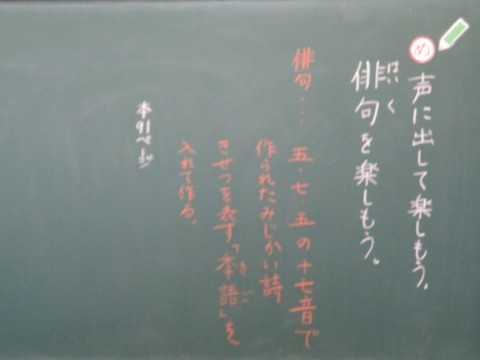 め 声に出して楽しもう。
はいく
俳句を楽しもう。
俳句‥‥五・七・五の十七音で
作られたみじかい詩
きせつを表す「季語」を
きご
入れて作る。
本91ページ